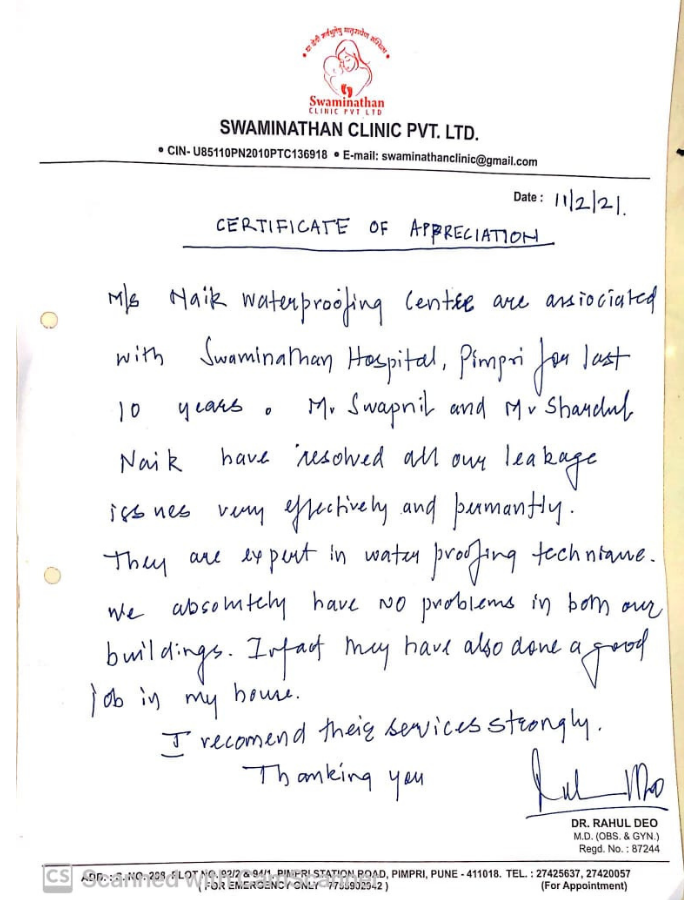 या देवी सर्वभूतेषु मातृरूपेण संस्थिता
Swaminathan
CLINIC PVT LTD
SWAMINATHAN CLINIC PVT. LTD.
• CIN- U85110PN2010PTC136918 • E-mail: swaminathanclinic@gmail.com
Date : 11/2/21.
CERTIFICATE OF APPRECIATION
M/s Naik Waterproofing Centre are associated
with Swaminathan Hospital, Pimpri for last
10 years. Mr Swapnil and Mr Shardul
Naik have resolved all our leakage
issues very effectively and permantly.
They are expert in water proofing technique.
We absolutely have NO problems in both our
buildings. Infact they have also done a good
job in my house.
I recomend their services strongly.
Thanking you
DR. RAHUL DEO
M.D. (OBS. & GYN.)
Regd. No. : 87244
ADD. : S. NO. 208, PLOT NO. 92/2 & 94/1, PIMPRI STATION ROAD, PIMPRI, PUNE - 411018. TEL. : 27425637, 27420057
( FOR EMERGENCY ONLY - ) (For Appointment)
CS Scanned with CamScanner